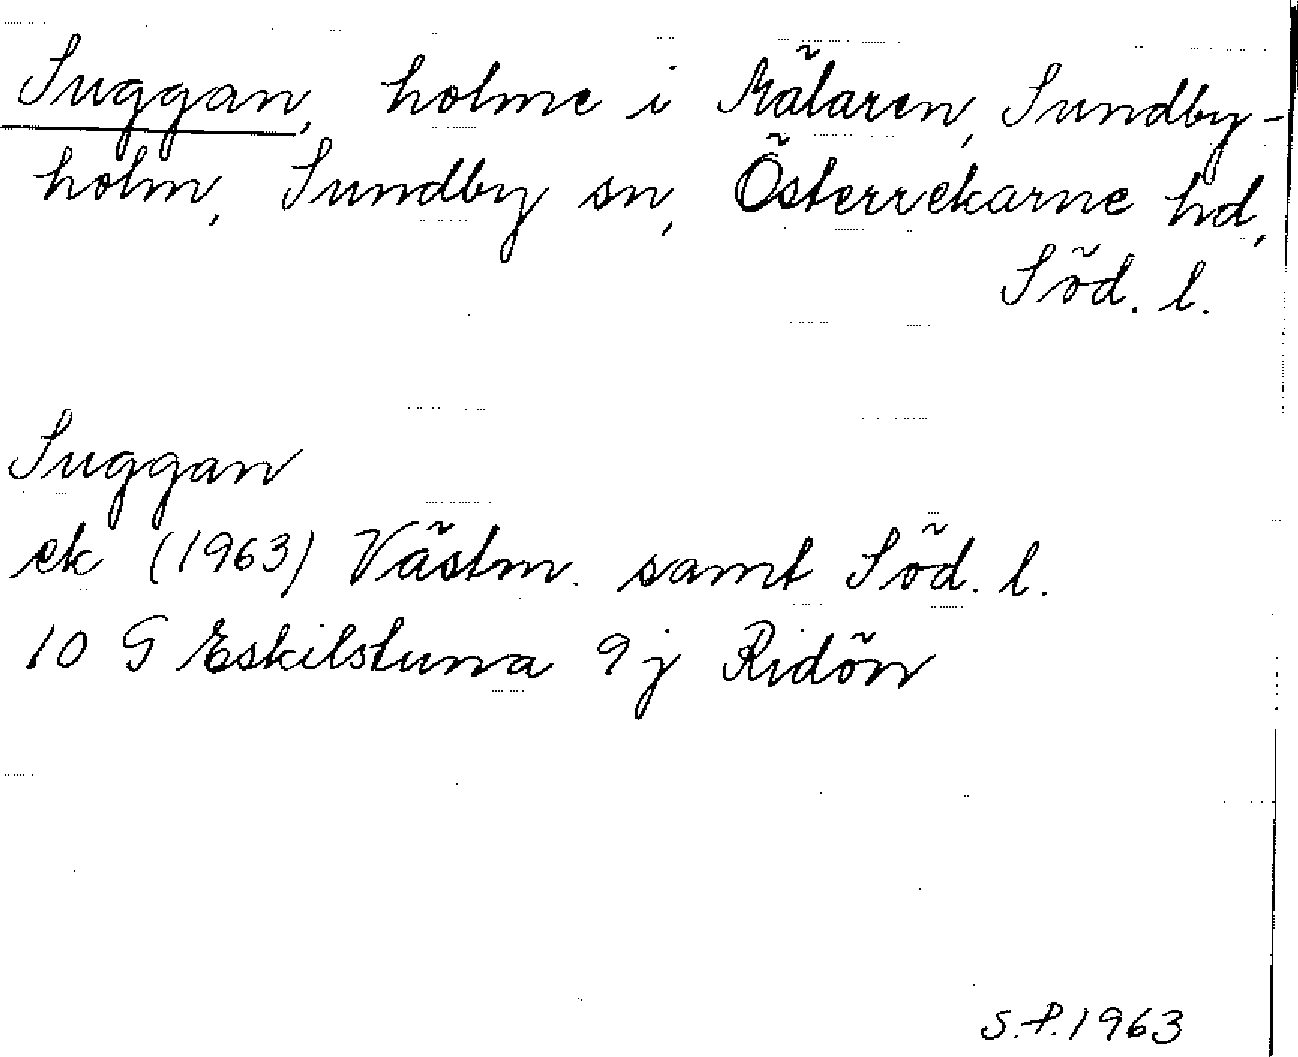 Suggan, holme i Mälaren, Sundby-
holm, Sundby sn, Österrekarne hd,
Söd. l.
Suggan
ek (1963) Västm. samt Söd. l.
10 G Eskilstuna 9 j Ridön
S.P. 1963